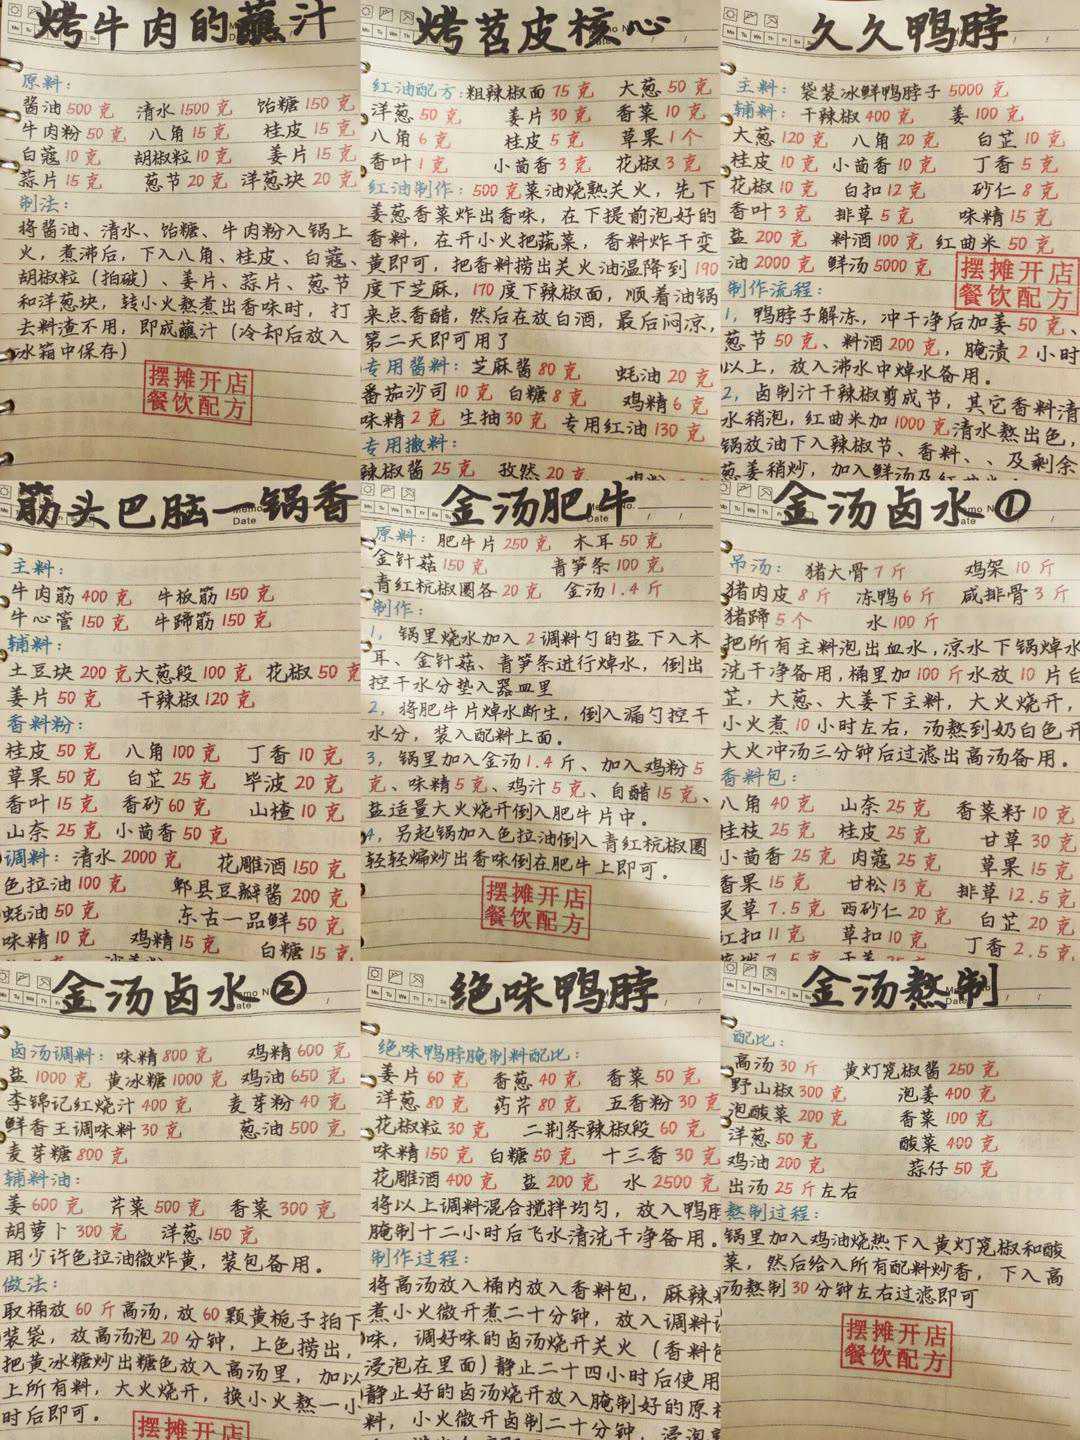 烤牛肉的蘸汁
原料:
酱油500克 清水1500克 饴糖150克
牛肉粉50克 八角15克 桂皮15克
白蔻10克 胡椒粒10克 姜片15克
蒜片15克 葱节20克 洋葱块20克
制法:
将酱油、清水、饴糖、牛肉粉入锅上
火，煮沸后，下入八角、桂皮、白蔻、
胡椒粒（拍破）、姜片、蒜片、葱节
和洋葱块，转小火熬煮出香味时，打
去料渣不用，即成蘸汁（冷却后放入
冰箱中保存）
摆摊开店
餐饮配方
烤苕皮核心
红油配方:粗辣椒面75克 大葱50克
洋葱50克 姜片30克 香菜10克
八角6克 桂皮5克 草果1个
香叶1克 小茴香3克 花椒3克
红油制作:500克菜油烧熟关火，先下
姜葱香菜炸出香味，在下提前泡好的
香料，在开小火把蔬菜，香料炸干变
黄即可，把香料捞出关火油温降到190
度下芝麻，170度下辣椒面，顺着油锅
来点香醋，然后在放白酒，最后闷凉，
第二天即可用了
专用酱料:芝麻酱80克 蚝油20克
番茄沙司10克 白糖8克 鸡精6克
味精2克 生抽30克 专用红油130克
专用撒料:
辣椒酱25克 孜然20克
久久鸭脖
主料: 袋装冰鲜鸭脖子5000克
辅料: 干辣椒400克 姜100克
大葱120克 八角20克 白芷10克
桂皮10克 小茴香10克 丁香5克
花椒10克 白扣12克 砂仁8克
香叶3克 排草5克 味精15克
盐200克 料酒100克 红曲米50克
油2000克 鲜汤5000克
摆摊开店
餐饮配方
制作流程:
1，鸭脖子解冻，冲干净后加姜50克、
葱节50克、料酒200克，腌渍2小时
以上，放入沸水中焯水备用。
2，卤制汁干辣椒剪成节，其它香料清
水稍泡，红曲米加1000克清水熬出色，
锅放油下入辣椒节、香料、、及剩余
葱姜稍炒，加入鲜汤及
筋头巴脑一锅香
Date
主料:
牛肉筋400克 牛板筋150克
牛心管150克 牛蹄筋150克
辅料:
土豆块200克大葱段100克 花椒50克
姜片50克 干辣椒120克
香料粉:
桂皮50克 八角100克 丁香10克
草果50克 白芷25克 毕波20克
香叶15克 香砂60克 山楂10克
山奈25克 小茴香50克
调料: 清水2000克 花雕酒150克
色拉油100克 郫县豆瓣酱200克
蚝油50克 东古一品鲜50克
味精10克 鸡精15克 白糖15克
金汤肥牛
Date
原料: 肥牛片250克 木耳50克
金针菇150克 青笋条100克
青红杭椒圈各20克 金汤1.4斤
制作:
1，锅里烧水加入2调料勺的盐下入木
耳、金针菇、青笋条进行焯水，倒出
控干水分垫入器皿里
2，将肥牛片焯水断生，倒入漏勺控干
水分，装入配料上面。
3，锅里加入金汤1.4斤、加入鸡粉5
克、味精5克、鸡汁5克、白醋15克、
盐适量大火烧开倒入肥牛片中。
4，另起锅加入色拉油倒入青红杭椒圈
轻轻煸炒出香味倒在肥牛上即可。
摆摊开店
餐饮配方
金汤卤水①
吊汤: 猪大骨7斤 鸡架10斤
猪肉皮8斤 冻鸭6斤 咸排骨3斤
猪蹄5个 水100斤
把所有主料泡出血水，凉水下锅焯水
洗干净备用，桶里加100斤水放10片白
芷，大葱、大姜下主料，大火烧开，
小火煮10小时左右，汤熬到奶白色开
大火冲汤三分钟后过滤出高汤备用。
香料包:
八角40克 山奈25克 香菜籽10克
桂枝25克 桂皮25克 甘草30克
小茴香25克 肉蔻25克 草果15克
香果15克 甘松13克 排草12.5克
灵草7.5克 西砂仁20克 白芷20克
红扣11克 草扣10克 丁香2.5克
金汤卤水②
卤汤调料: 味精800克 鸡精600克
盐1000克 黄冰糖1000克 鸡油650克
李锦记红烧汁400克 麦芽粉40克
鲜香王调味料30克 葱油500克
麦芽糖800克
辅料油:
姜600克 芹菜500克 香菜300克
胡萝卜300克 洋葱150克
用少许色拉油微炸黄，装包备用。
做法:
取桶放60斤高汤，放60颗黄栀子拍下
装袋，放高汤泡20分钟，上色捞出，
把黄冰糖炒出糖色放入高汤里，加以
上所有料，大火烧开，换小火熬一小
时后即可。
摆摊开店
绝味鸭脖
绝味鸭脖腌制料配比:
姜片60克 香葱40克 香菜50克
洋葱80克 药芹80克 五香粉30克
花椒粒30克 二荆条辣椒段60克
味精150克 白糖50克 十三香30克
花雕酒400克 盐200克 水2500克
将以上调料混合搅拌均匀，放入鸭脖
腌制十二小时后飞水清洗干净备用。
制作过程:
将高汤放入桶内放入香料包，麻辣
煮小火微开煮二十分钟，放入调料
味，调好味的卤汤烧开关火（香料包
浸泡在里面）静止二十四小时后使用
静止好的卤汤烧开放入腌制好的原
料，小火微开卤制二十分钟，浸泡
金汤熬制
配比:
高汤30斤 黄灯笼椒酱250克
野山椒300克 泡姜400克
泡酸菜200克 香菜100克
洋葱50克 酸菜400克
鸡油200克 蒜仔50克
出汤25斤左右
熬制过程:
锅里加入鸡油烧热下入黄灯笼椒和酸
菜，然后给入所有配料炒香，下入高
汤熬制30分钟左右过滤即可
摆摊开店
餐饮配方